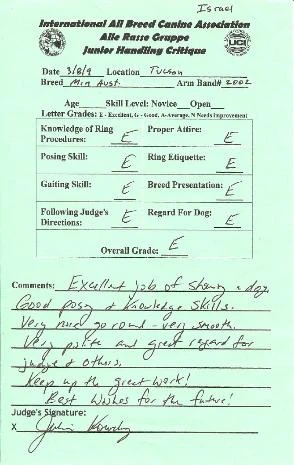 Israel
International All Breed Canine Association
Alle Rasse Gruppe
Junior Handling Critique
UCI
Date 3/8/9 Location Tucson
Breed Min Aust. Arm Band# 2002
Age Skill Level: Novice Open
Letter Grades: E - Excellent, G - Good, A-Average, N Needs Improvement
Knowledge of Ring Procedures: E Proper Attire: E
Posing Skill: E Ring Etiquette: E
Gaiting Skill: E Breed Presentation: E
Following Judge's Directions: E Regard For Dog: E
Overall Grade: E
Comments: Excellent job of showing a dog.
Good posing & Knowledge Skills.
Very nice go round - very smooth.
Very polite and great regard for
judge & others.
Keep up the great work!
Best Wishes for the future!
Judge's Signature:
X